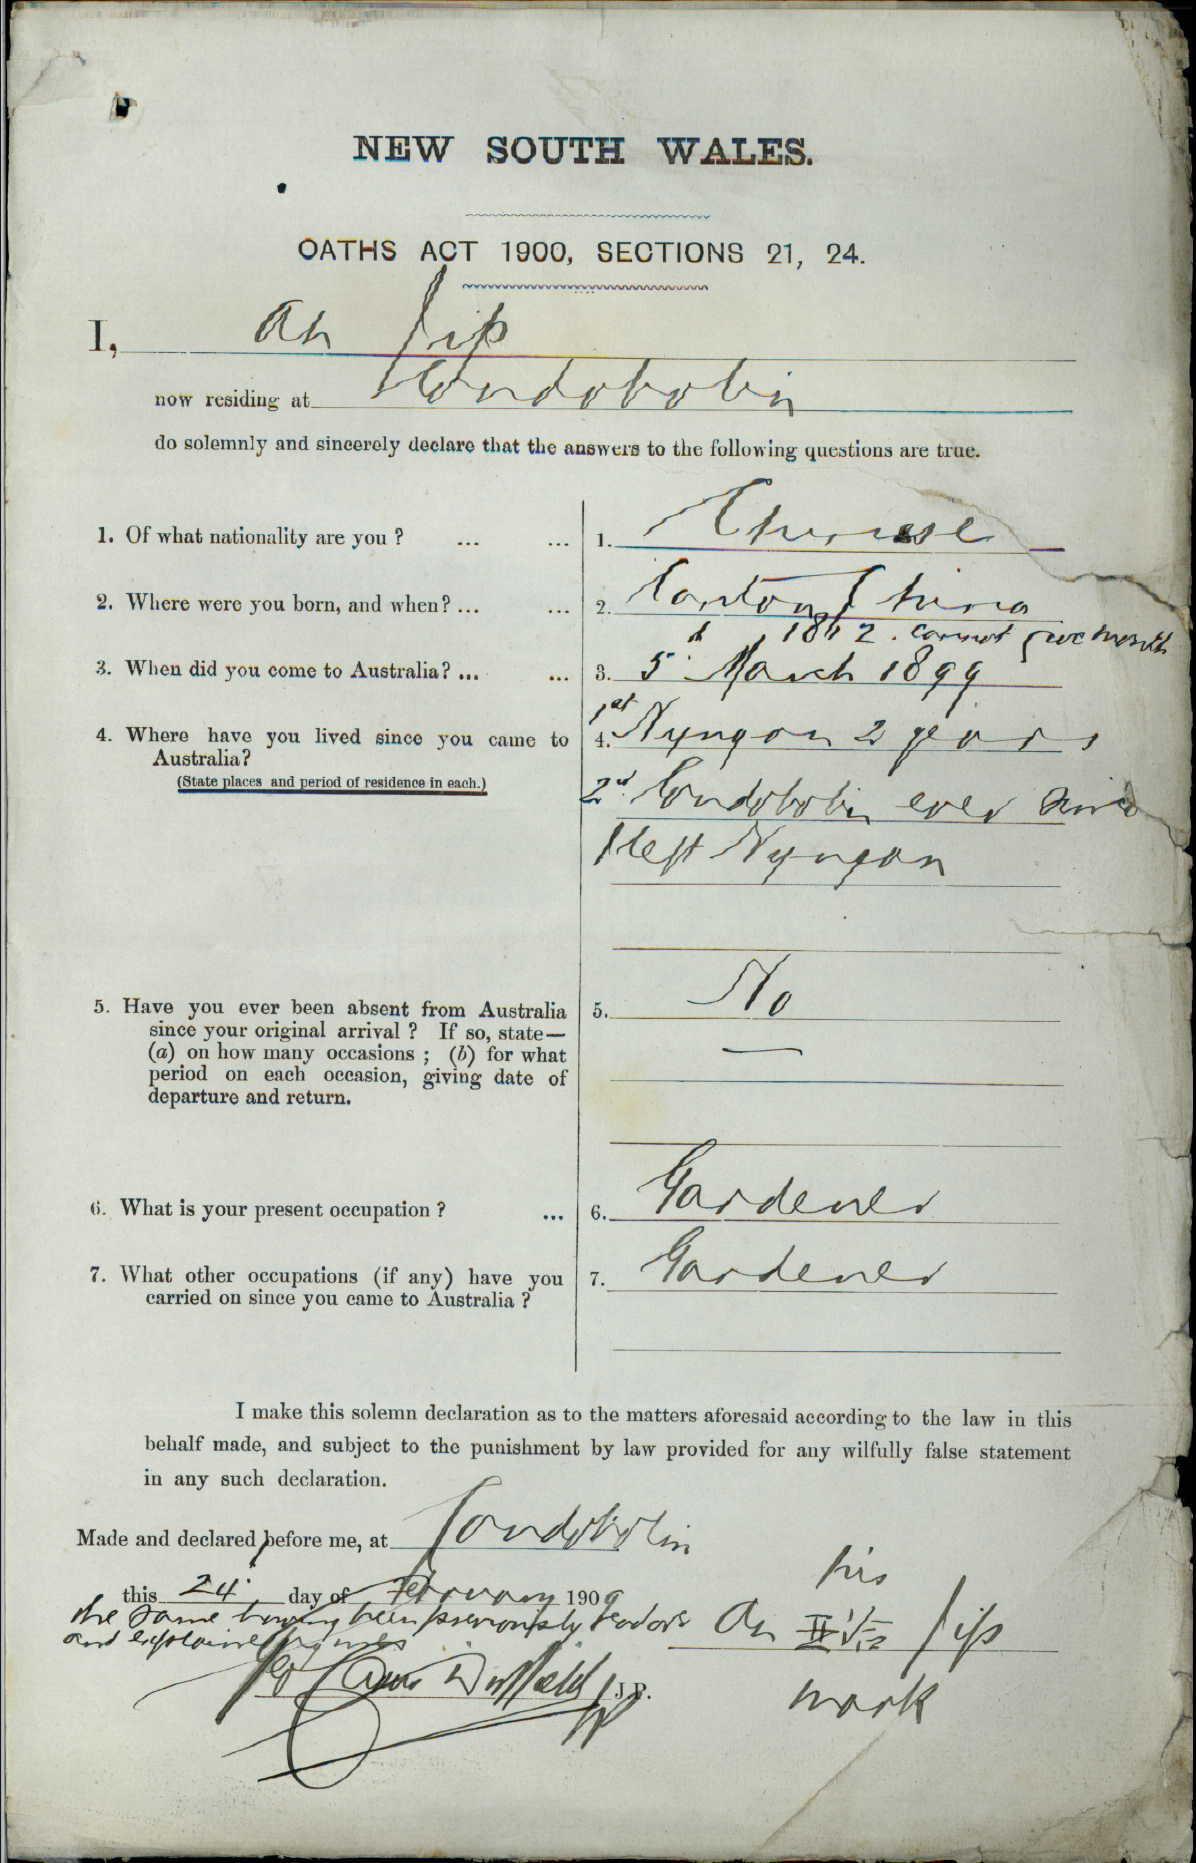 NEW SOUTH WALES.
OATHS ACT 1900, SECTIONS 21, 24.
I, Ah Jip
now residing at Condobolin
do solemnly and sincerely declare that the answers to the following questions are true.
1. Of what nationality are you ? ... ... 1. Chinese
2. Where were you born, and when? ... ... 2. Canton China
cannot give month
3. When did you come to Australia? ... ... 3. 5th March 1899
4. Where have you lived since you came to 4. 1st Nyngan 2 years
Australia?
(State places and period of residence in each.)
2nd Condobolin ever since
I left Nyngan
5. Have you ever been absent from Australia 5. No
since your original arrival ? If so, state—
(a) on how many occasions ; (b) for what
period on each occasion, giving date of
departure and return.
6. What is your present occupation ? ... 6. Gardener
7. What other occupations (if any) have you 7. Gardener
carried on since you came to Australia ?
I make this solemn declaration as to the matters aforesaid according to the law in this
behalf made, and subject to the punishment by law provided for any wilfully false statement
in any such declaration.
Made and declared before me, at Condobolin
his
this 24 day of February 1909
the same having been previously read over Ah Jip
and explained
J.P.
mark